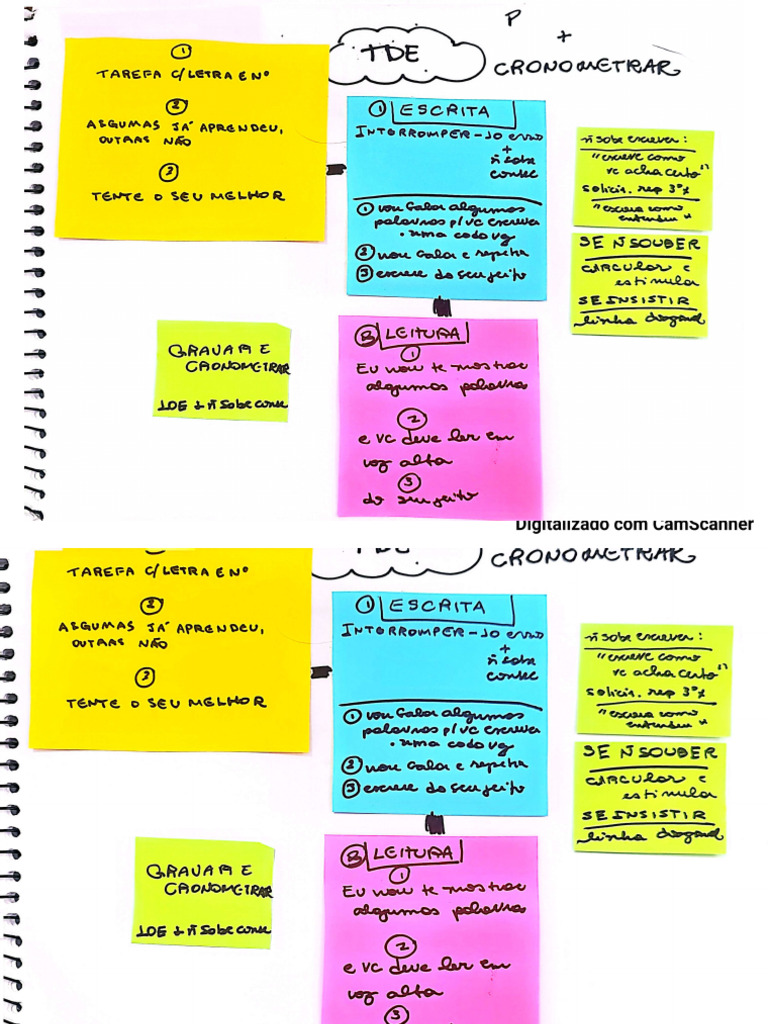 P
+
TDE
CRONOMETRAR
1
TAREFA C/ LETRA E Nº
2
ALGUMAS JÁ APRENDEU,
OUTRAS NÃO
3
TENTE O SEU MELHOR
1 ESCRITA
INTERROMPER - 10 erros
+
ñ sabe
consec
1 vou falar algumas
palavras p/ vc escrever
. uma cada vg
2 vou falar e repetir
3 escreve do seu jeito
ñ sabe escrever:
"escreve como
vc acha certo"
solicit. rep 3ª x
"escreva como
entendeu"
SE Ñ SOUBER
CIRCULAR e
estimula
SE INSISTIR
linha diagonal
GRAVAR E
CRONOMETRAR
10E + ñ sabe conse
B LEITURA
1
Eu vou te mostrar
algumas palavra
2
e vc deve ler em
voz alta
3
do seu jeito
Digitalizado com CamScanner
TDE
CRONOMETRAR
TAREFA C/ LETRA E Nº
2
ALGUMAS JÁ APRENDEU,
OUTRAS NÃO
3
TENTE O SEU MELHOR
1 ESCRITA
INTERROMPER - 10 erros
+
ñ sabe
consec
1 vou falar algumas
palavras p/ vc escrever
. uma cada vg
2 vou falar e repetir
3 escreve do seu jeito
ñ sabe escrever:
"escreve como
vc acha certo"
solicit. rep 3ª x
"escreva como
entendeu"
SE Ñ SOUBER
CIRCULAR e
estimula
SE INSISTIR
linha diagonal
GRAVAR E
CRONOMETRAR
10E + ñ sabe conse
B LEITURA
1
Eu vou te mostrar
algumas palavra
2
e vc deve ler em
voz alta
3